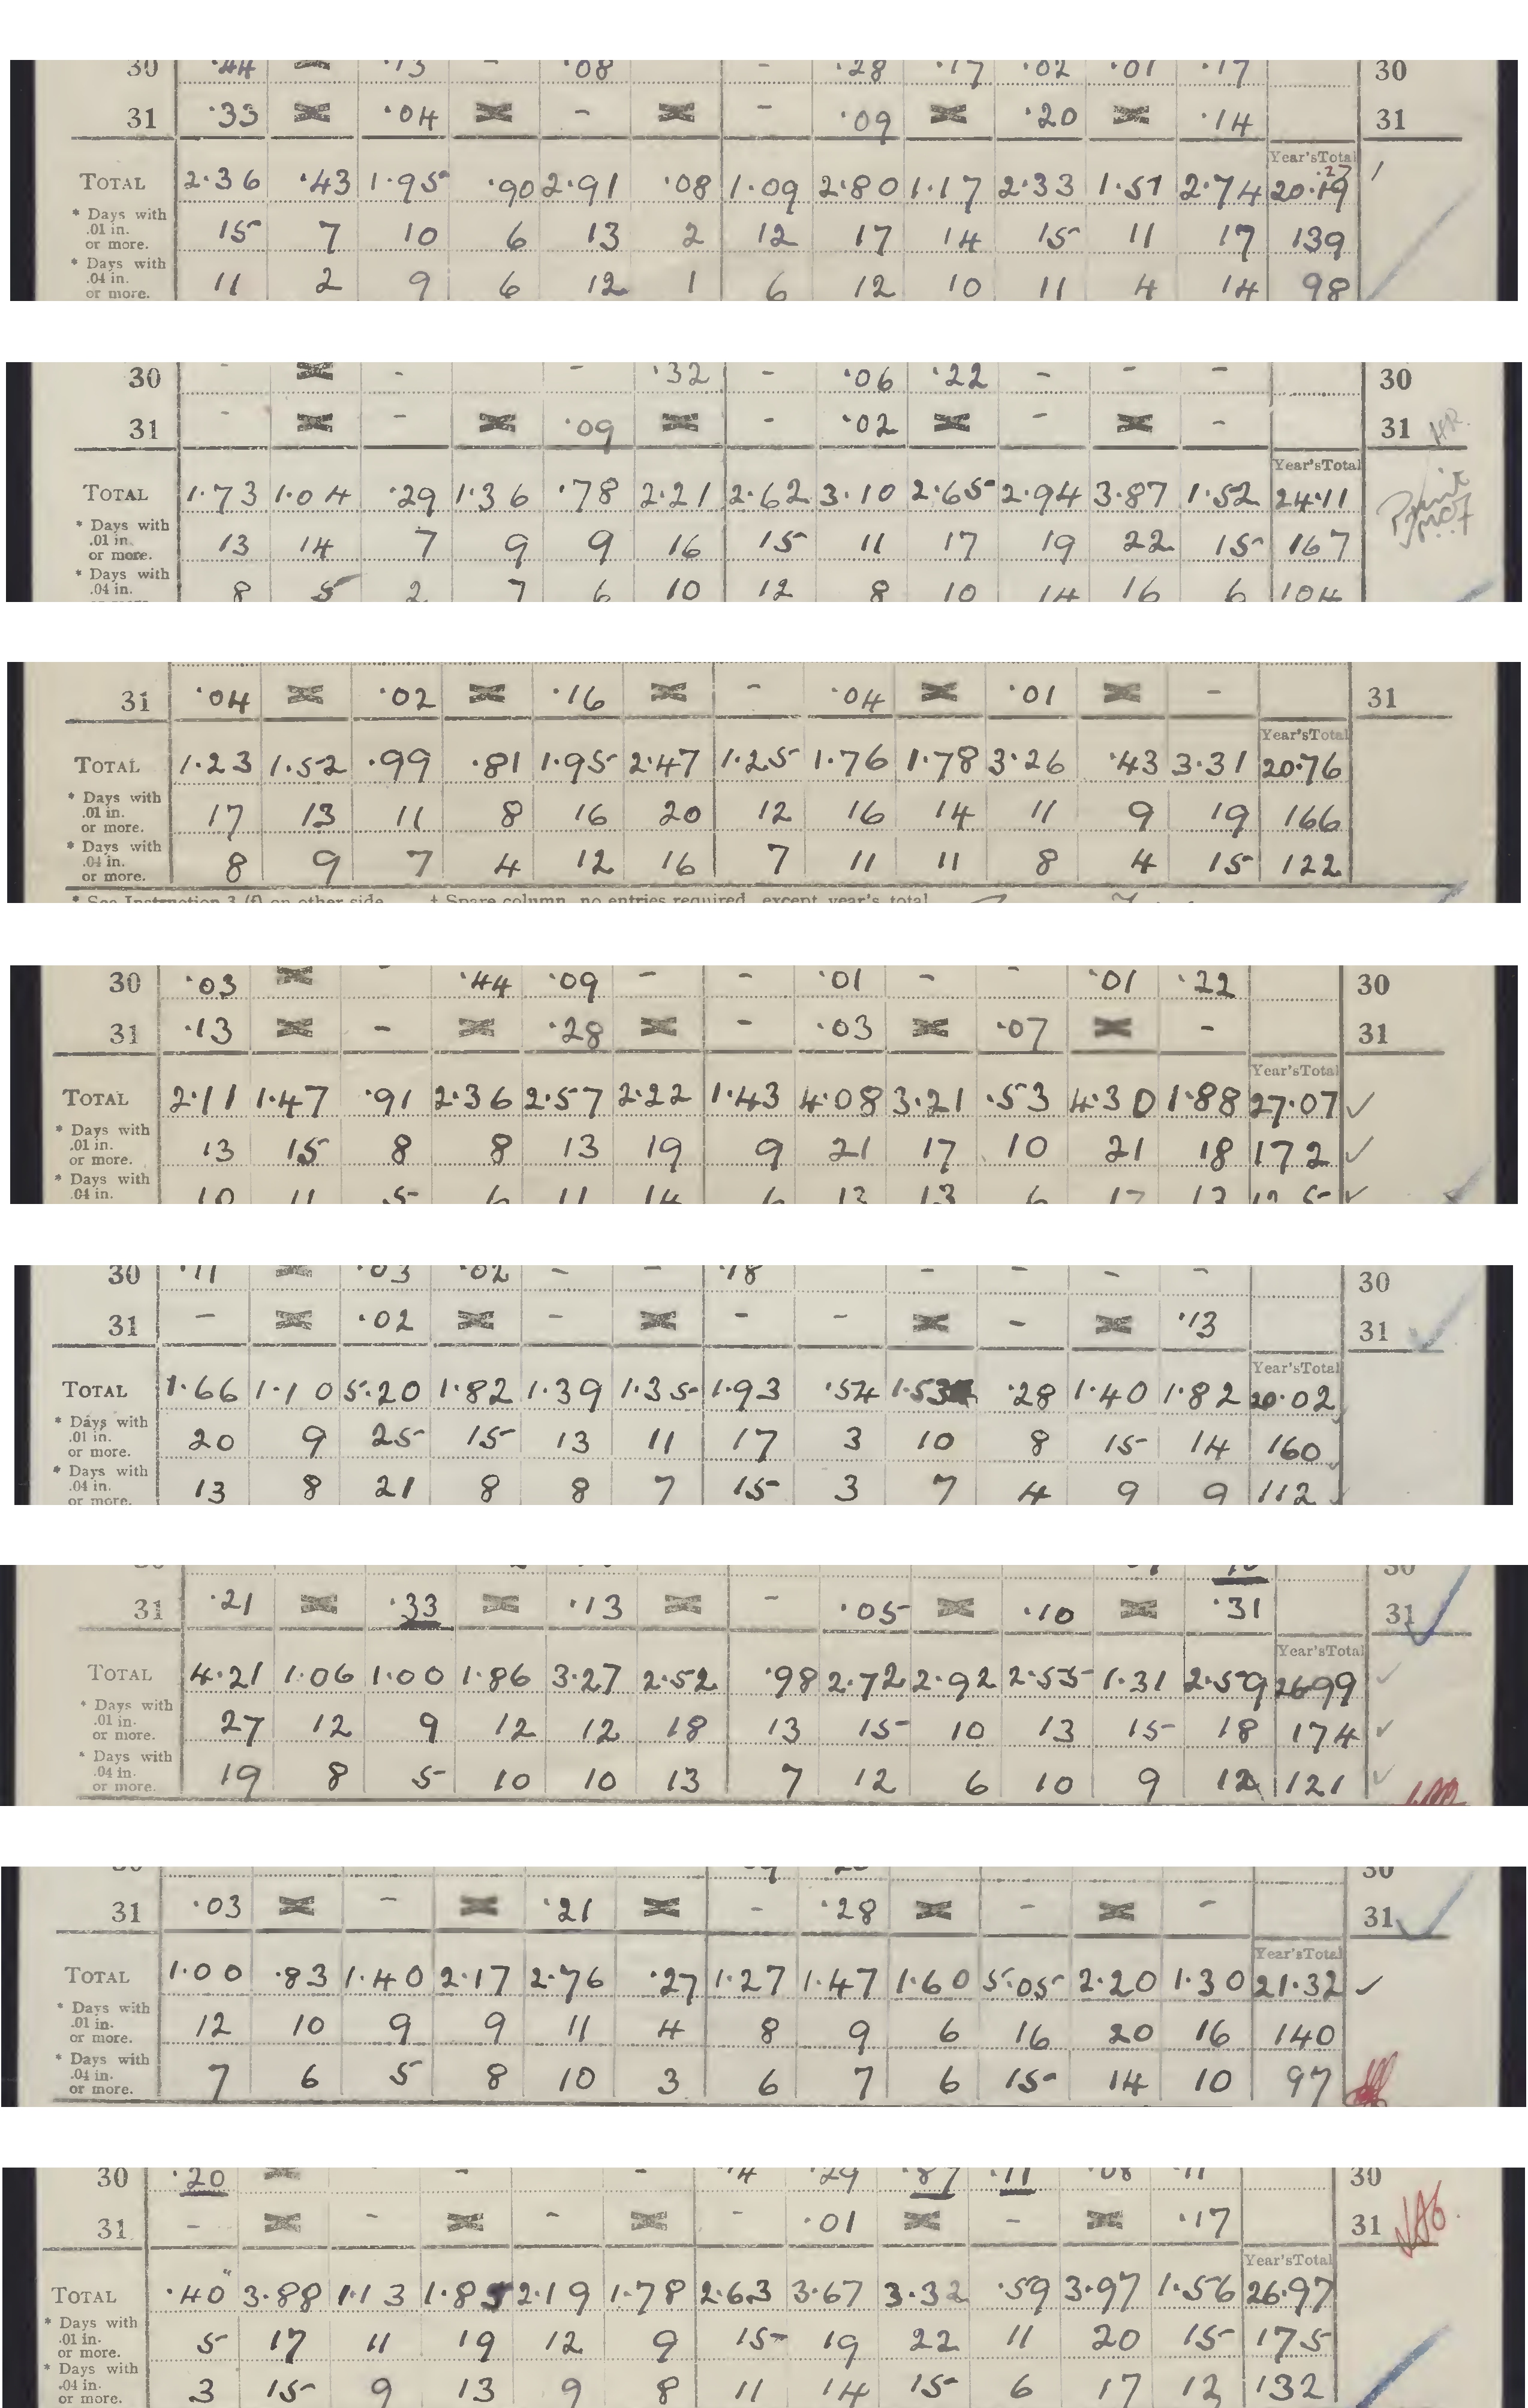 30 .44 .13 - .08 - .28 .17 .02 .01 .17 30
31 .33 .04 - - .09 .20 .14 31
Year's Total
.27
TOTAL 2.36 .43 1.95 .90 2.91 .08 1.09 2.80 1.17 2.33 1.51 2.74 20.19
* Days with .01 in. or more. 15 7 10 6 13 2 12 17 14 15 11 17 139
* Days with .04 in. or more. 11 2 9 6 12 1 6 12 10 11 4 14 98
30 - - - .32 - .06 .22 - - - 30
31 - - .09 - .02 - - 31 HR.
Year's Total
TOTAL 1.73 1.04 .29 1.36 .78 2.21 2.62 3.10 2.65 2.94 3.87 1.52 24.11
* Days with .01 in. or more. 13 14 7 9 9 16 15 11 17 19 22 15 167
* Days with .04 in. 8 5 2 7 6 10 12 8 10 14 16 6 104
31 .04 .02 .16 - .04 .01 - 31
Year's Total
TOTAL 1.23 1.52 .99 .81 1.95 2.47 1.25 1.76 1.78 3.26 .43 3.31 20.76
* Days with .01 in. or more. 17 13 11 8 16 20 12 16 14 11 9 19 166
* Days with .04 in. or more. 8 9 7 4 12 16 7 11 11 8 4 15 122
* See Instruction 3 (f) on other side. † Spare column, no entries required, except year's total
30 .03 - .44 .09 - - .01 - - .01 .22 30
31 .13 - .28 - .03 .07 - 31
Year's Total
TOTAL 2.11 1.47 .91 2.36 2.57 2.22 1.43 4.08 3.21 .53 4.30 1.88 27.07
* Days with .01 in. or more. 13 15 8 8 13 19 9 21 17 10 21 18 172
* Days with .04 in. 10 11 5 6 11 14 6 13 13 6 17 13 125
30 .11 .03 .02 - - .18 - - - - 30
31 - .02 - - - - .13 31
Year's Total
TOTAL 1.66 1.10 5.20 1.82 1.39 1.35 1.93 .54 1.53 .28 1.40 1.82 20.02
* Days with .01 in. or more. 20 9 25 15 13 11 17 3 10 8 15 14 160
* Days with .04 in. or more. 13 8 21 8 8 7 15 3 7 4 9 9 112
31 .21 .33 .13 - .05 .10 .31 31
Year's Total
TOTAL 4.21 1.06 1.00 1.86 3.27 2.52 .98 2.72 2.92 2.55 1.31 2.59 26.99
* Days with .01 in. or more. 27 12 9 12 12 18 13 15 10 13 15 18 174
* Days with .04 in. or more. 19 8 5 10 10 13 7 12 6 10 9 12 121
30
31 .03 - .21 - .28 - - 31
Year's Total
TOTAL 1.00 .83 1.40 2.17 2.76 .27 1.27 1.47 1.60 5.05 2.20 1.30 21.32
* Days with .01 in. or more. 12 10 9 9 11 4 8 9 6 16 20 16 140
* Days with .04 in. or more. 7 6 5 8 10 3 6 7 6 15 14 10 97
30 .20 - - .14 .29 .87 .11 .08 .11 30
31 - - - - .01 - .17 31
Year's Total
TOTAL .40 3.88 1.13 1.85 2.19 1.78 2.63 3.67 3.32 .59 3.97 1.56 26.97
* Days with .01 in. or more. 5 17 11 19 12 9 15 19 22 11 20 15 175
* Days with .04 in. or more. 3 15 9 13 9 8 11 14 15 6 17 12 132